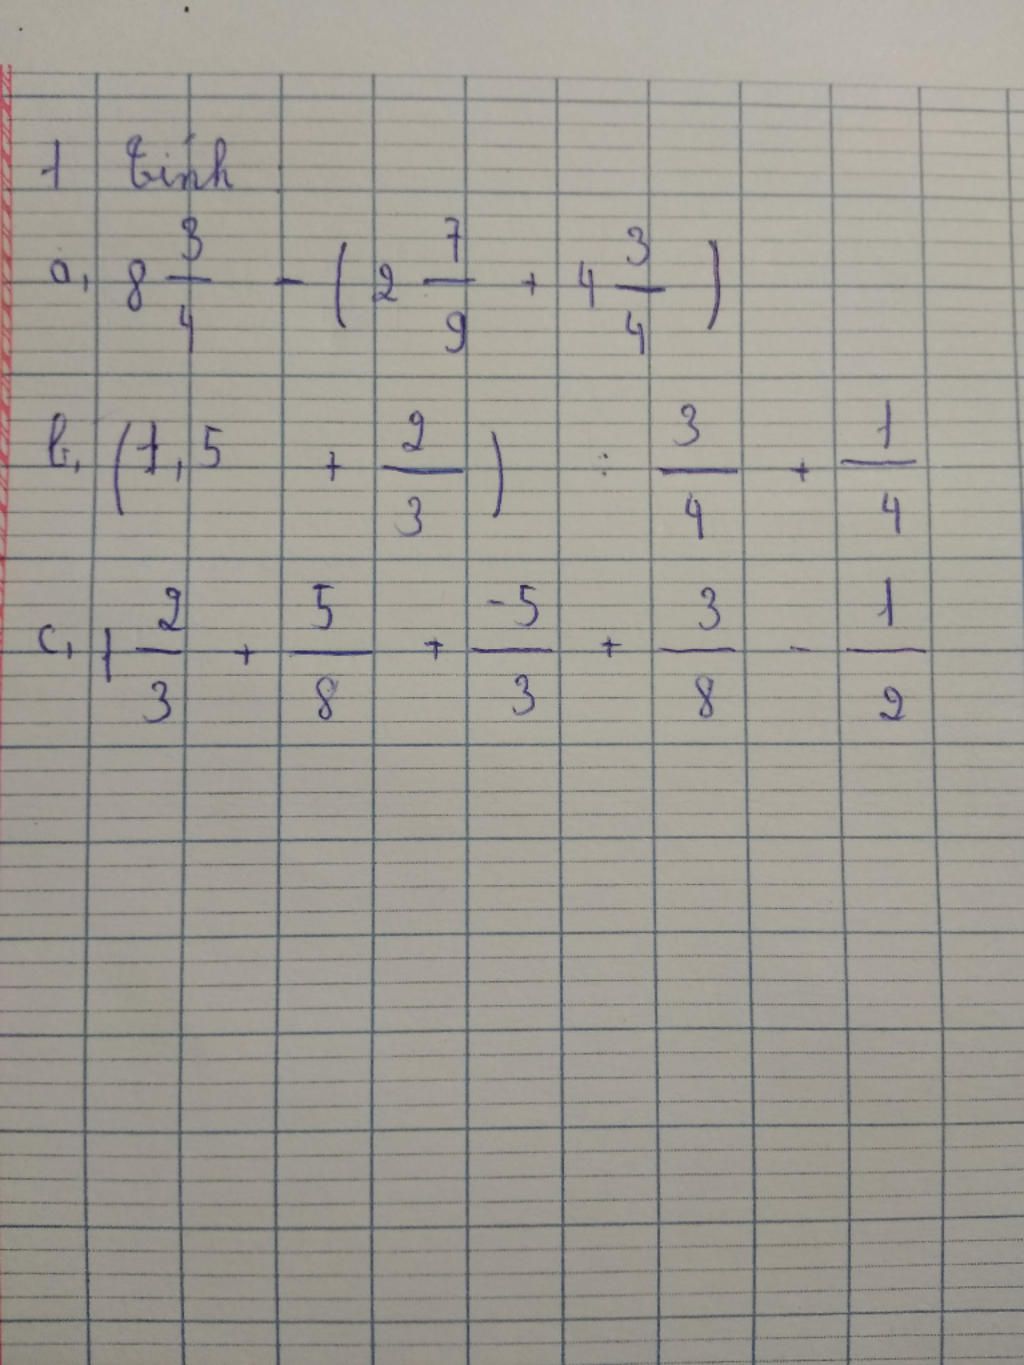 1 Tính
a, 8 3/4 - ( 2 7/9 + 4 3/4 )
b, ( 1,5 + 2/3 ) : 3/4 + 1/4
c, 1 2/3 + 5/8 + -5/3 + 3/8 - 1/2